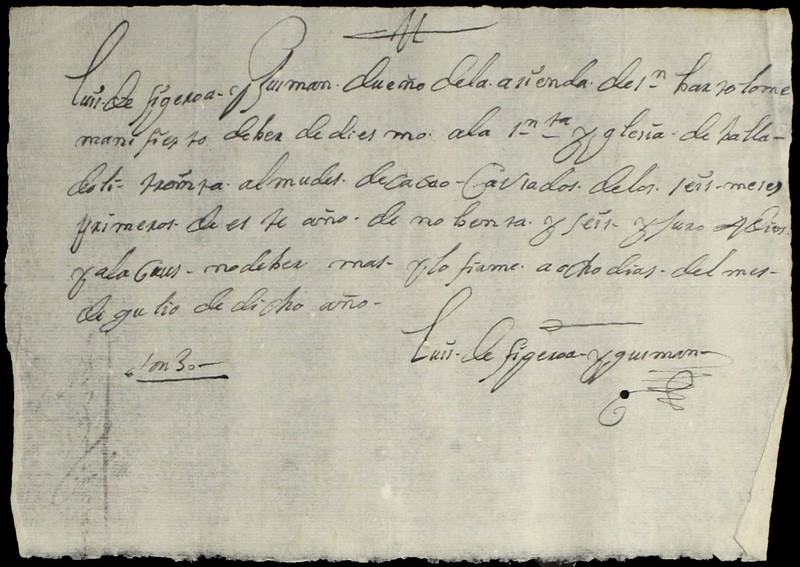 Luis de figeroa y Gusman dueño de la asienda de sn bartolome
manifiesto deber de diesmo a la snta yglesia de balla
doli treinta almudes de cacao Caviados de los seis meses
primeros de este año de nobenta y seis y juro A Dios
y a la Crus no deber mas y lo firme a ocho dias del mes
de gulio de dicho año
Luis de figeroa y gusman
son 30